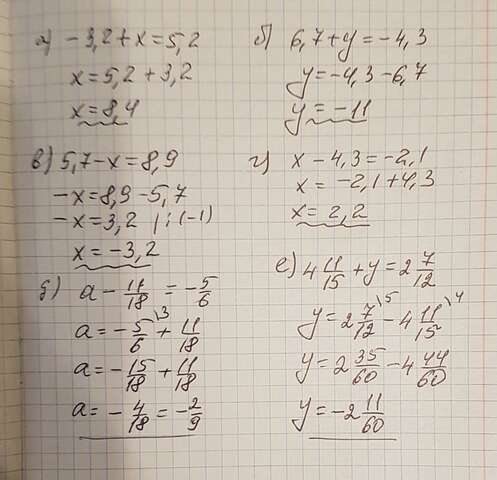 а) -3,2+x=5,2
x=5,2+3,2
x=8,4
б) 6,7+y=-4,3
y=-4,3-6,7
y=-11
в) 5,7-x=8,9
-x=8,9-5,7
-x=3,2 |:(-1)
x=-3,2
г) x-4,3=-2,1
x=-2,1+4,3
x=2,2
д) a-11/18=-5/6
a=-5/6\3+11/18
a=-15/18+11/18
a=-4/18=-2/9
е) 4 11/15+y=2 7/12
y=2 7/12\5-4 11/15\4
y=2 35/60-4 44/60
y=-2 11/60